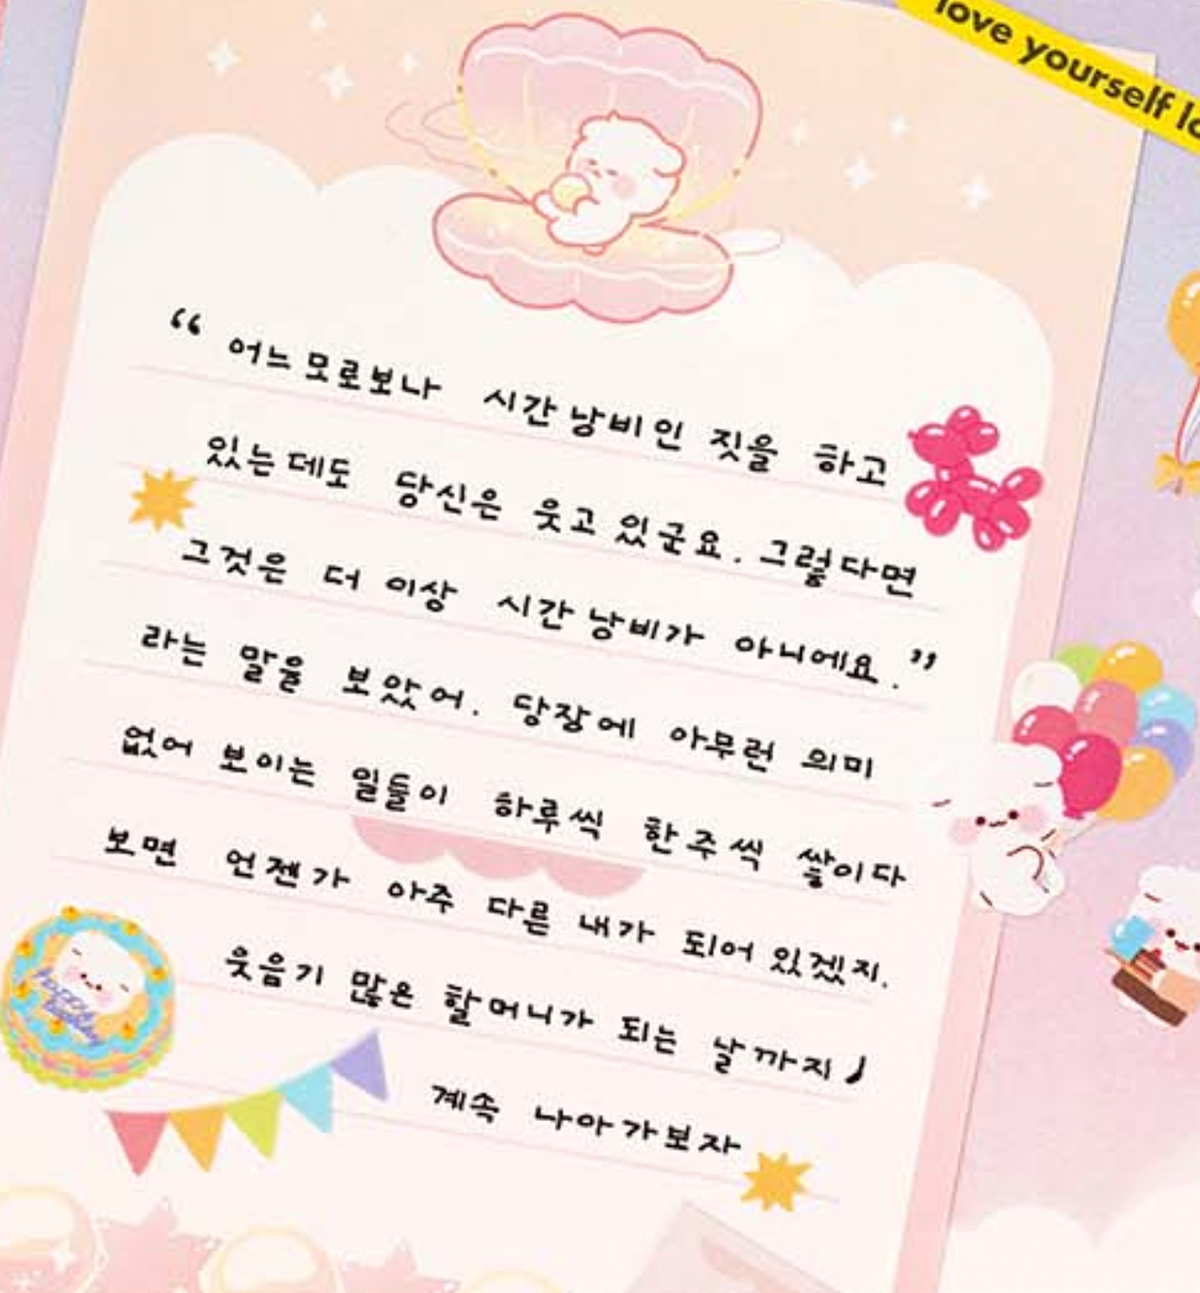 love yourself lo
“ 어느모로보나 시간낭비인 짓을 하고
있는데도 당신은 웃고있군요. 그렇다면
그것은 더 이상 시간낭비가 아니에요.”
라는 말을 보았어. 당장에 아무런 의미
없어 보이는 일들이 하루씩 한주씩 쌓이다
보면 언젠가 아주 다른 내가 되어 있겠지.
웃음기 많은 할머니가 되는 날까지♩
계속 나아가보자
happy
birthday